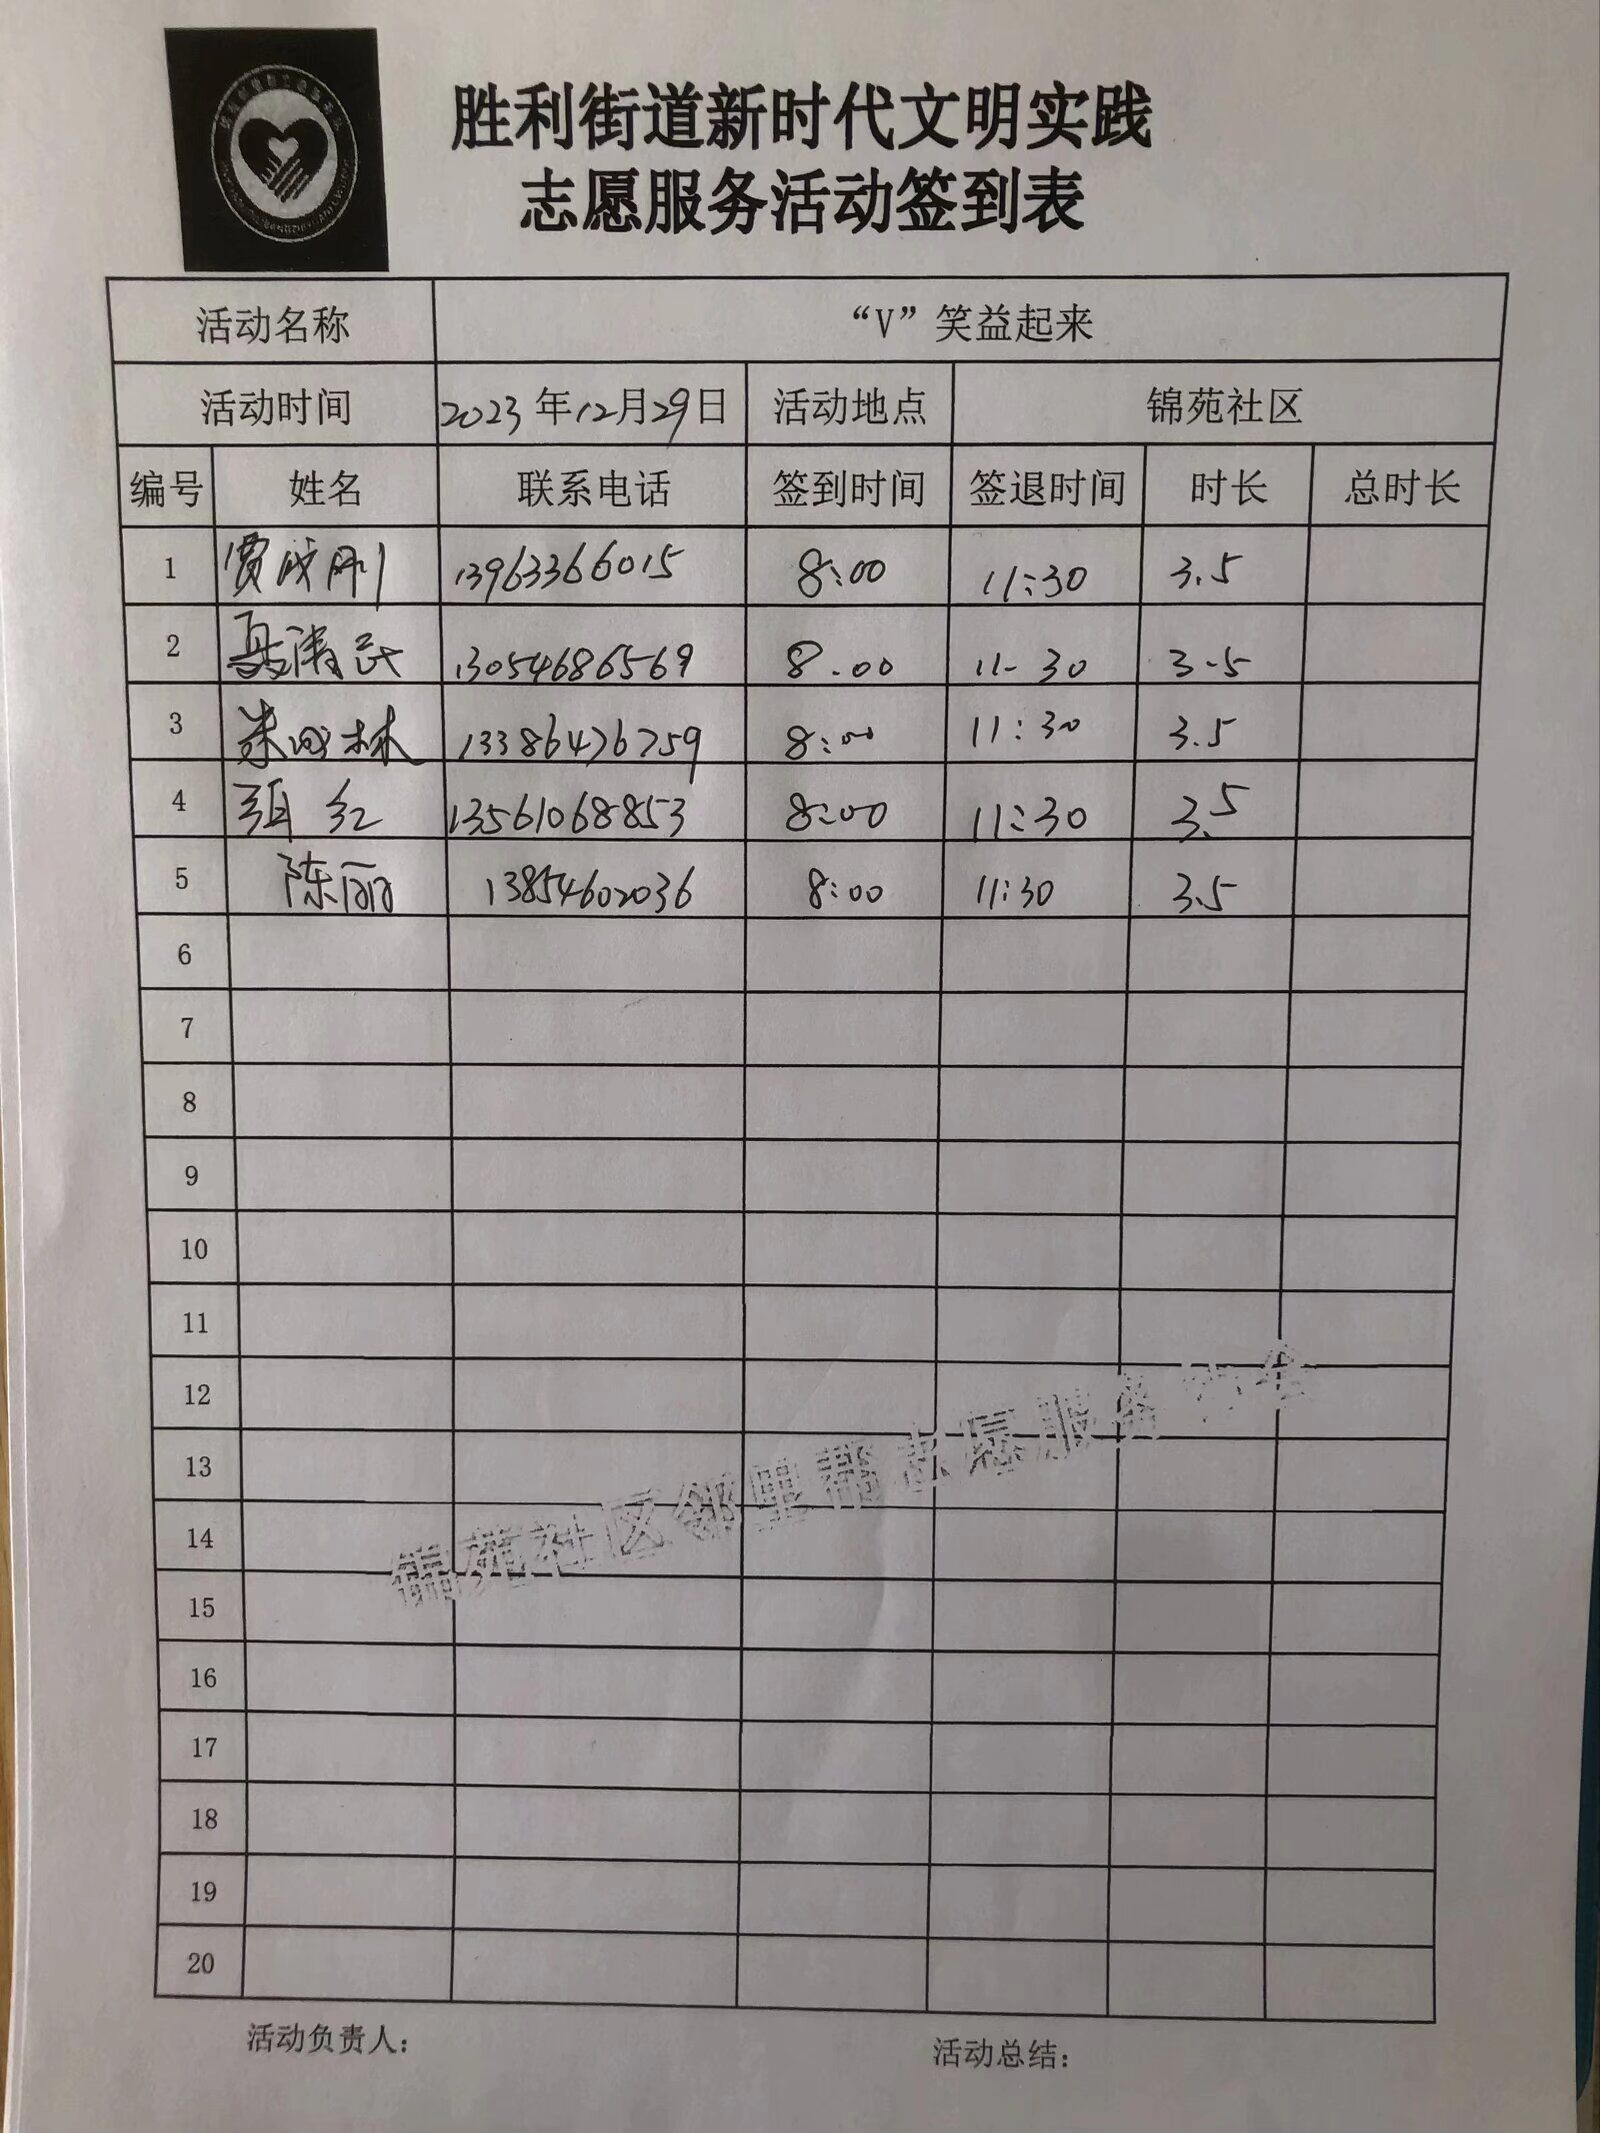 胜利街道新时代文明实践
志愿服务活动签到表
活动名称 “V”笑益起来
活动时间 2023年12月29日 活动地点 锦苑社区
编号 姓名 联系电话 签到时间 签退时间 时长 总时长
1 贾成刚 13963366015 8:00 11:30 3.5
2 13054686569 8.00 11-30 3.5
3 林 13386476759 8:00 11:30 3.5
4 红 13561068853 8:00 11:30 3.5
5 陈丽 13854602036 8:00 11:30 3.5
6
7
8
9
10
11
12
13
14
15
16
17
18
19
20
锦苑社区邻里帮志愿服务协会
活动负责人： 活动总结：